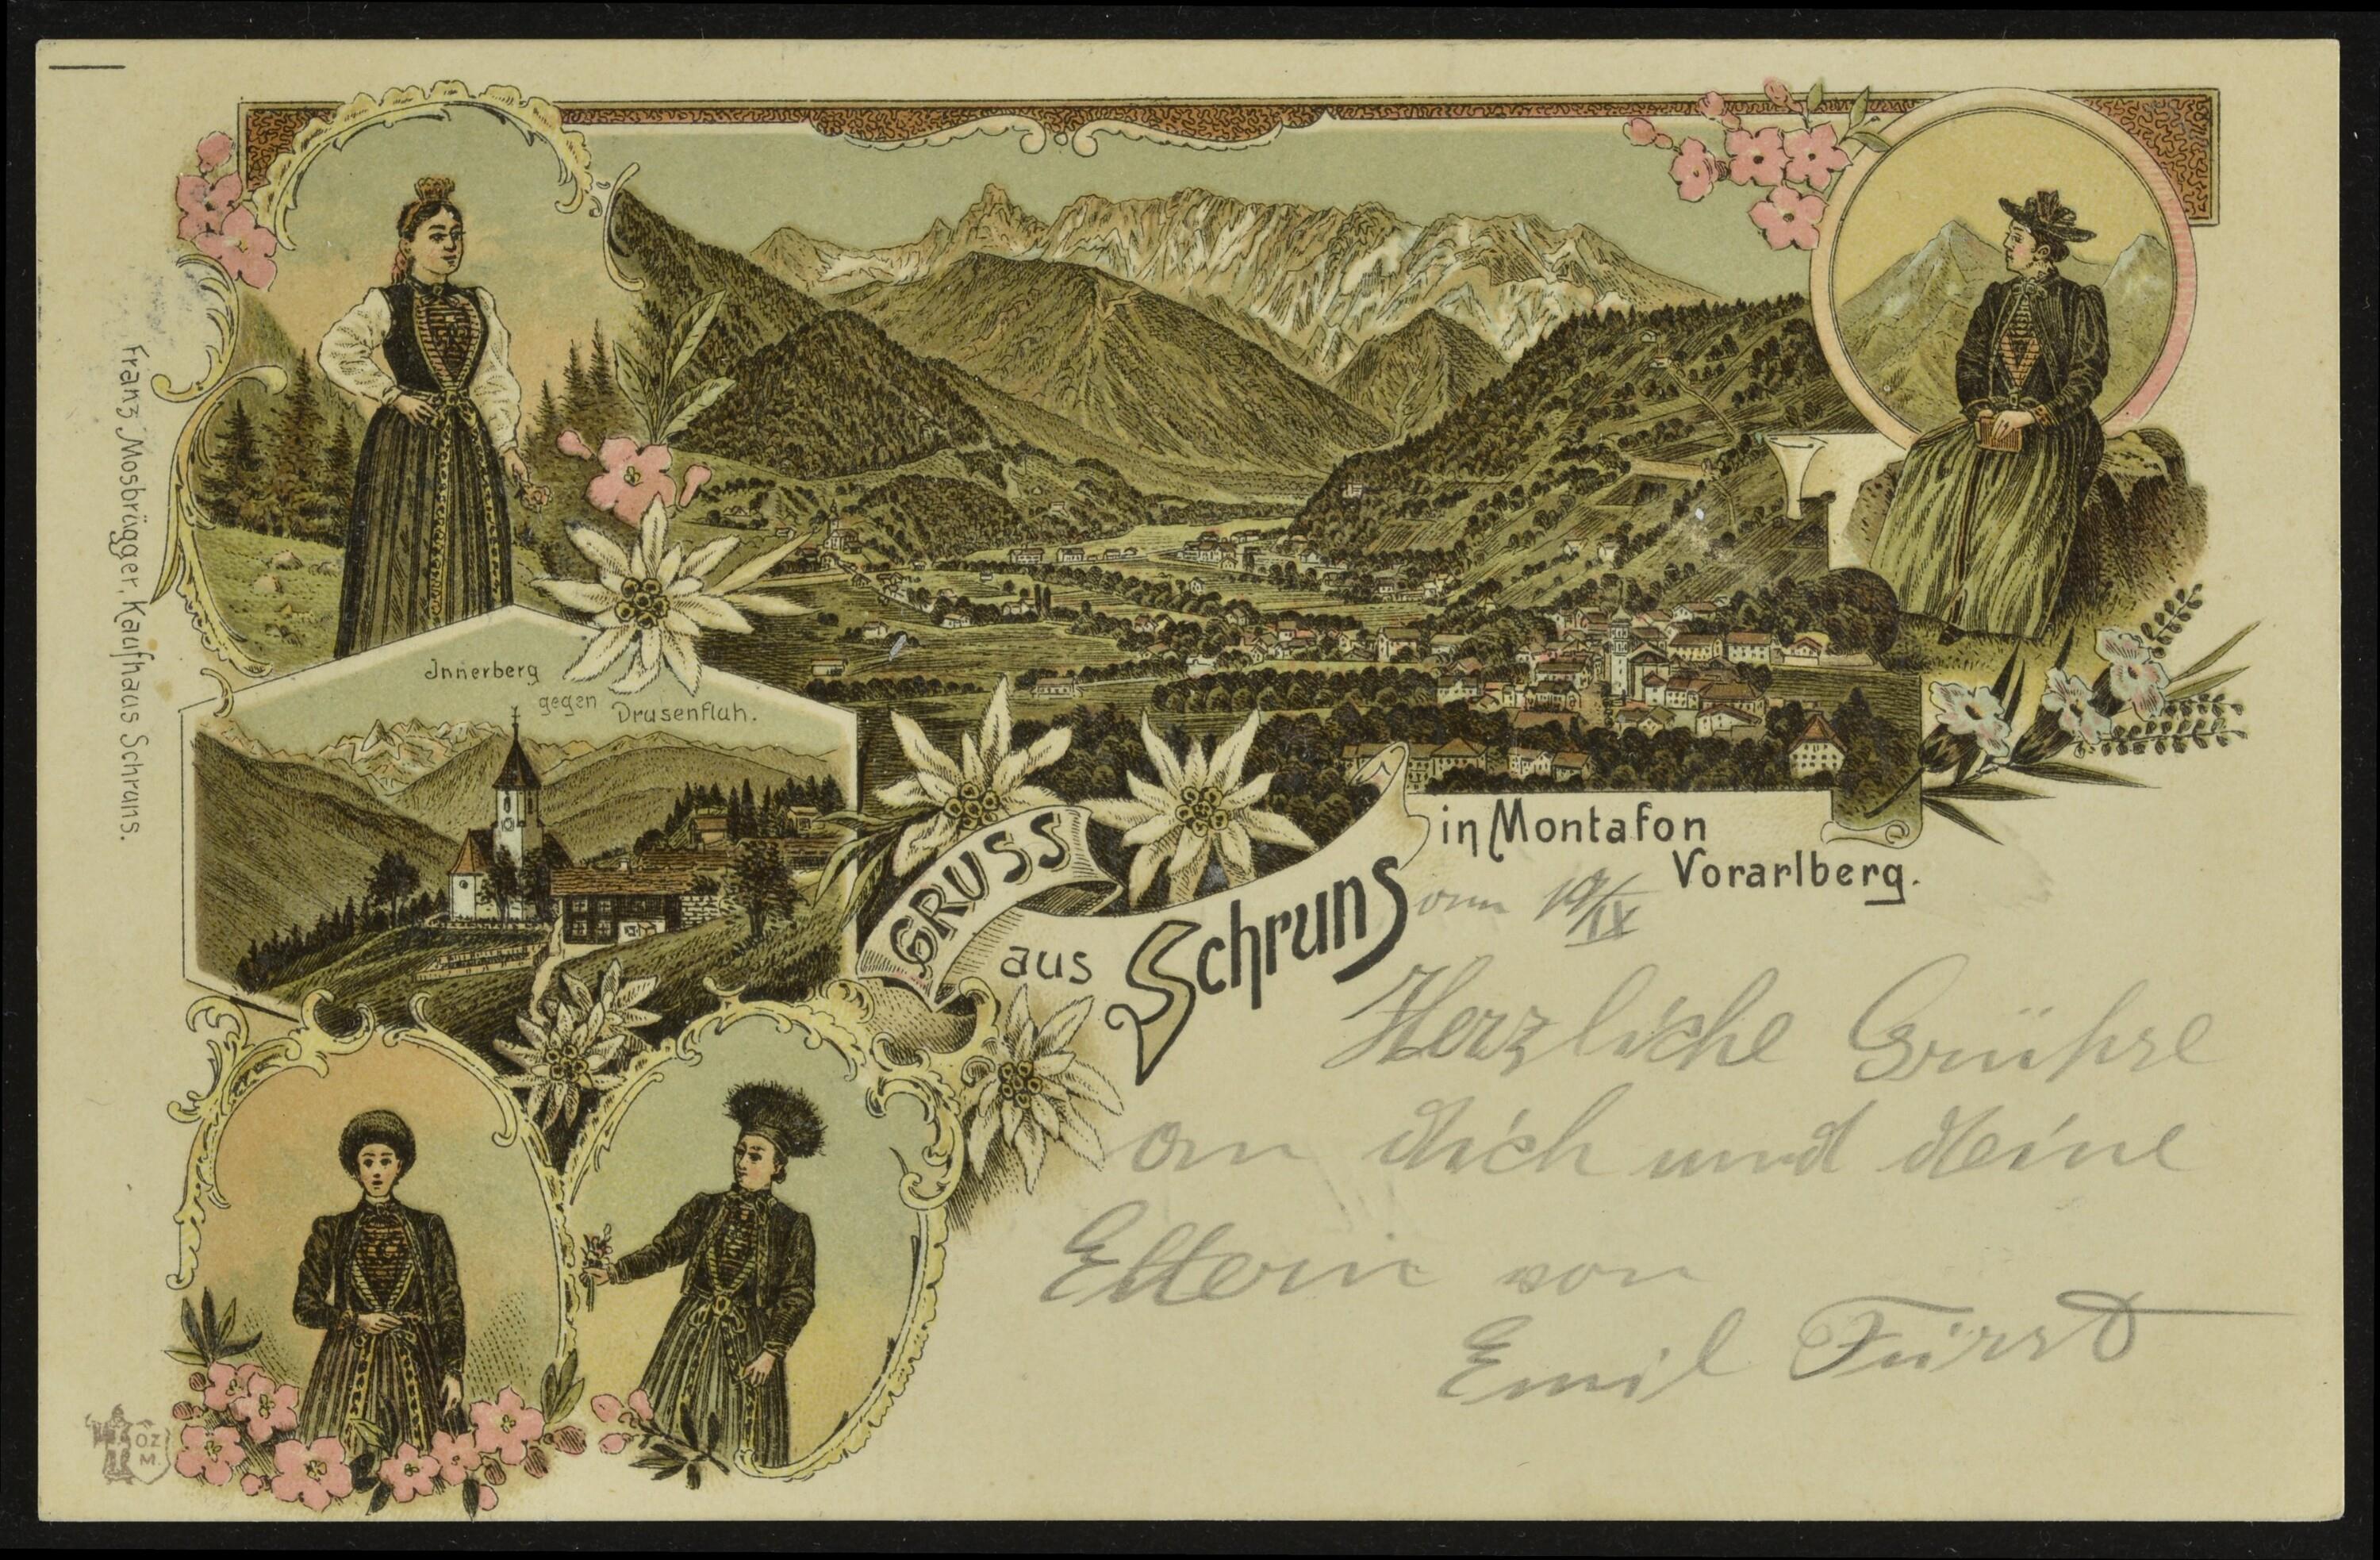 Franz Mosbrügger, Kaufhaus Schruns.
Innerberg
gegen
Drusenfluh.
GRUSS
aus
Schruns
in Montafon
Vorarlberg.
vom 19/IX
Herzliche Grüße
an dich und deine
Eltern von
Emil Fürst
ÖZ
M.